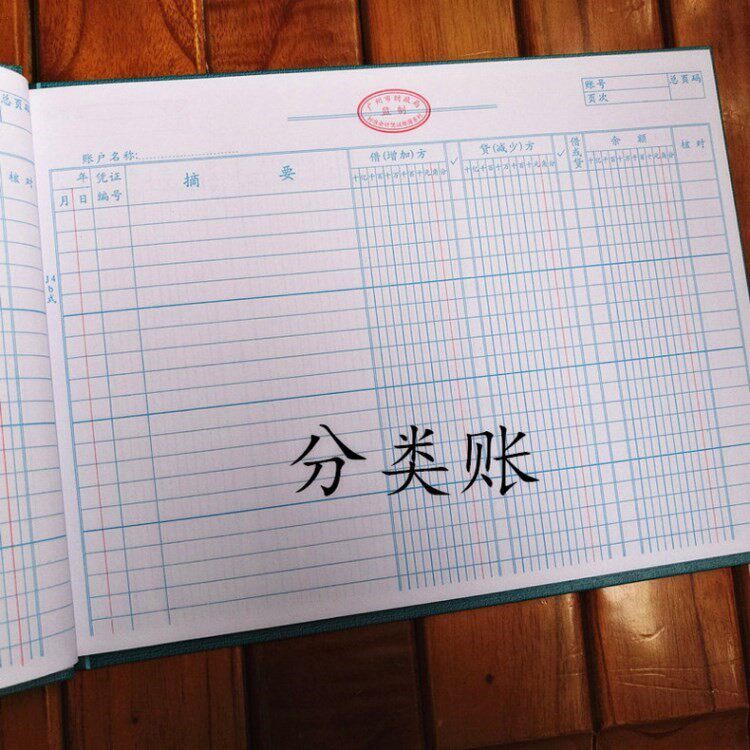 总页码
核对
广州市财政局
监制
账号
总页码
页次
账户名称:
年
凭证
摘要
借(增加)方
✓
贷(减少)方
✓
借或贷
余额
核对
月
日
编号
十亿千百十万千百十元角分
十亿千百十万千百十元角分
十亿千百十万千百十元角分
J4b式
分类账